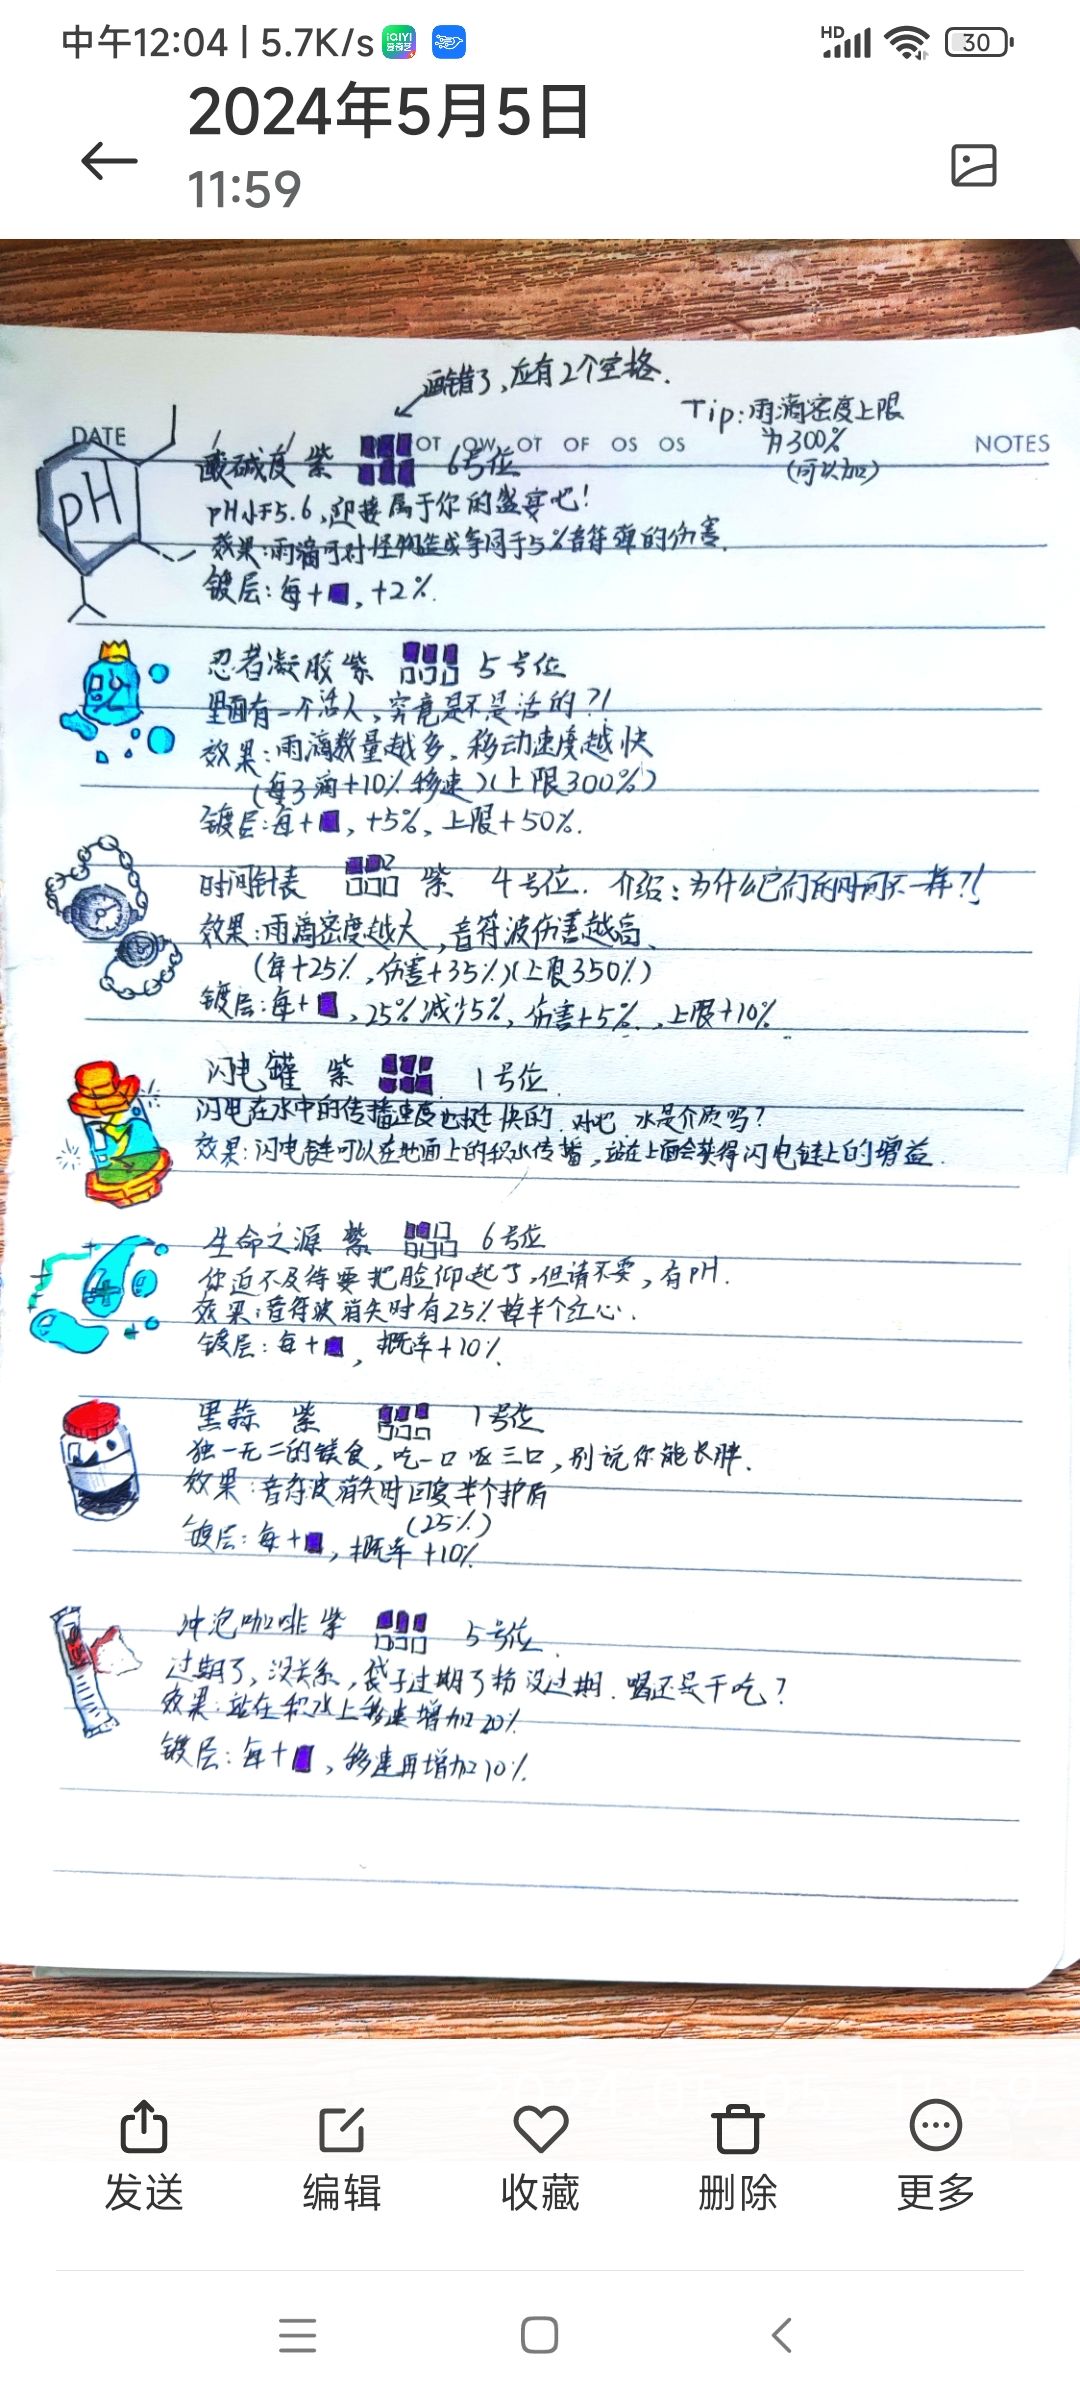 中午12:04 | 5.7K/s
iQIYI
爱奇艺
HD
30
2024年5月5日
11:59
画错了,应有2个空格.
Tip:雨滴密度上限
为300%
(可以加)
DATE
OT OW OT OF OS OS
NOTES
pH
酸碱度 紫 6号位
pH小于5.6,迎接属于你的盛宴吧!
效果:雨滴可对怪物造成等同于5%音符弹的伤害.
镀层:每+,+2%.
忍者凝胶 紫 5号位
里面有一个活人,究竟是不是活的?!
效果:雨滴数量越多,移动速度越快
(每3滴+10%移速)(上限300%)
镀层:每+,+5%,上限+50%.
时间针表 紫 4号位. 介绍:为什么它们的时间不一样?!
效果:雨滴密度越大,音符波伤害越高.
(每+25%,伤害+35%)(上限350%)
镀层:每+,25%减少5%,伤害+5%,上限+10%
闪电罐 紫 1号位
闪电在水中的传播速度也挺快的.对吧 水是介质吗?
效果:闪电链可以在地面上的积水传播,站在上面会获得闪电链上的增益.
生命之源 紫 6号位
你迫不及待要把脸仰起了,但请不要,有pH.
效果:音符波消失时有25%掉半个红心.
镀层:每+,概率+10%
黑蒜 紫 1号位
独一无二的美食,吃一口呕三口,别说你能长胖.
效果:音符波消失时回复半个护盾
(25%)
镀层:每+,概率+10%
冲泡咖啡 紫 5号位
过期了,没关系,袋子过期了粉没过期.喝还是干吃?
效果:站在积水上移速增加20%
镀层:每+,移速再增加10%.
发送 编辑 收藏 删除 更多